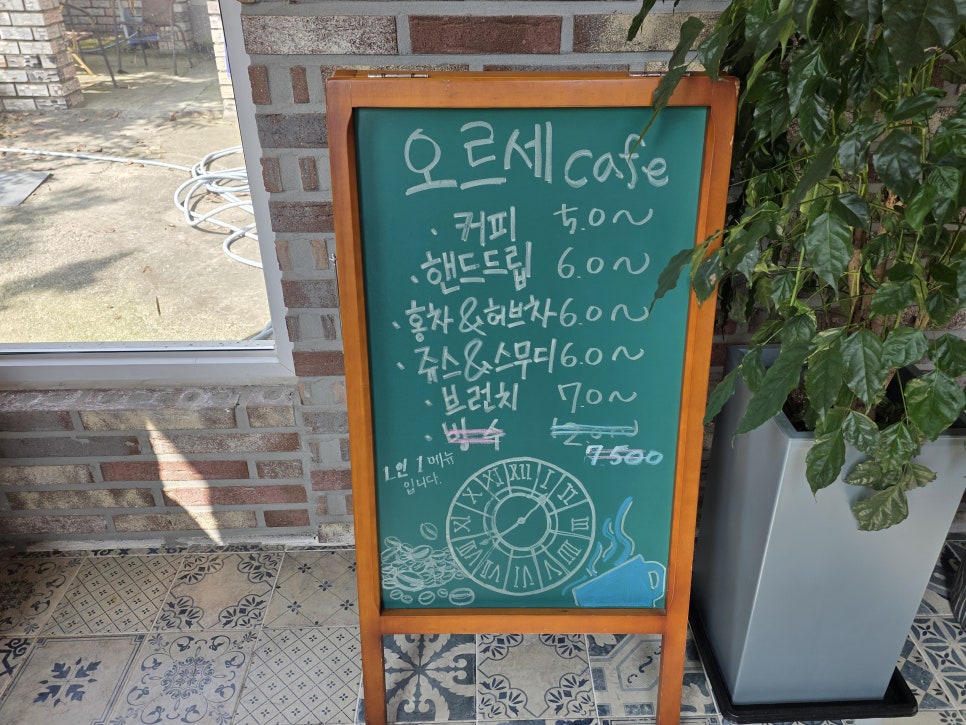 오르세 cafe
· 커피 5.0~
· 핸드드립 6.0~
· 홍차&허브차 6.0~
· 쥬스&스무디 6.0~
· 브런치 7.0~
· 빙수
7500
1인 1메뉴
입니다.
XII I II III IIII V VI VII VIII IX X XI